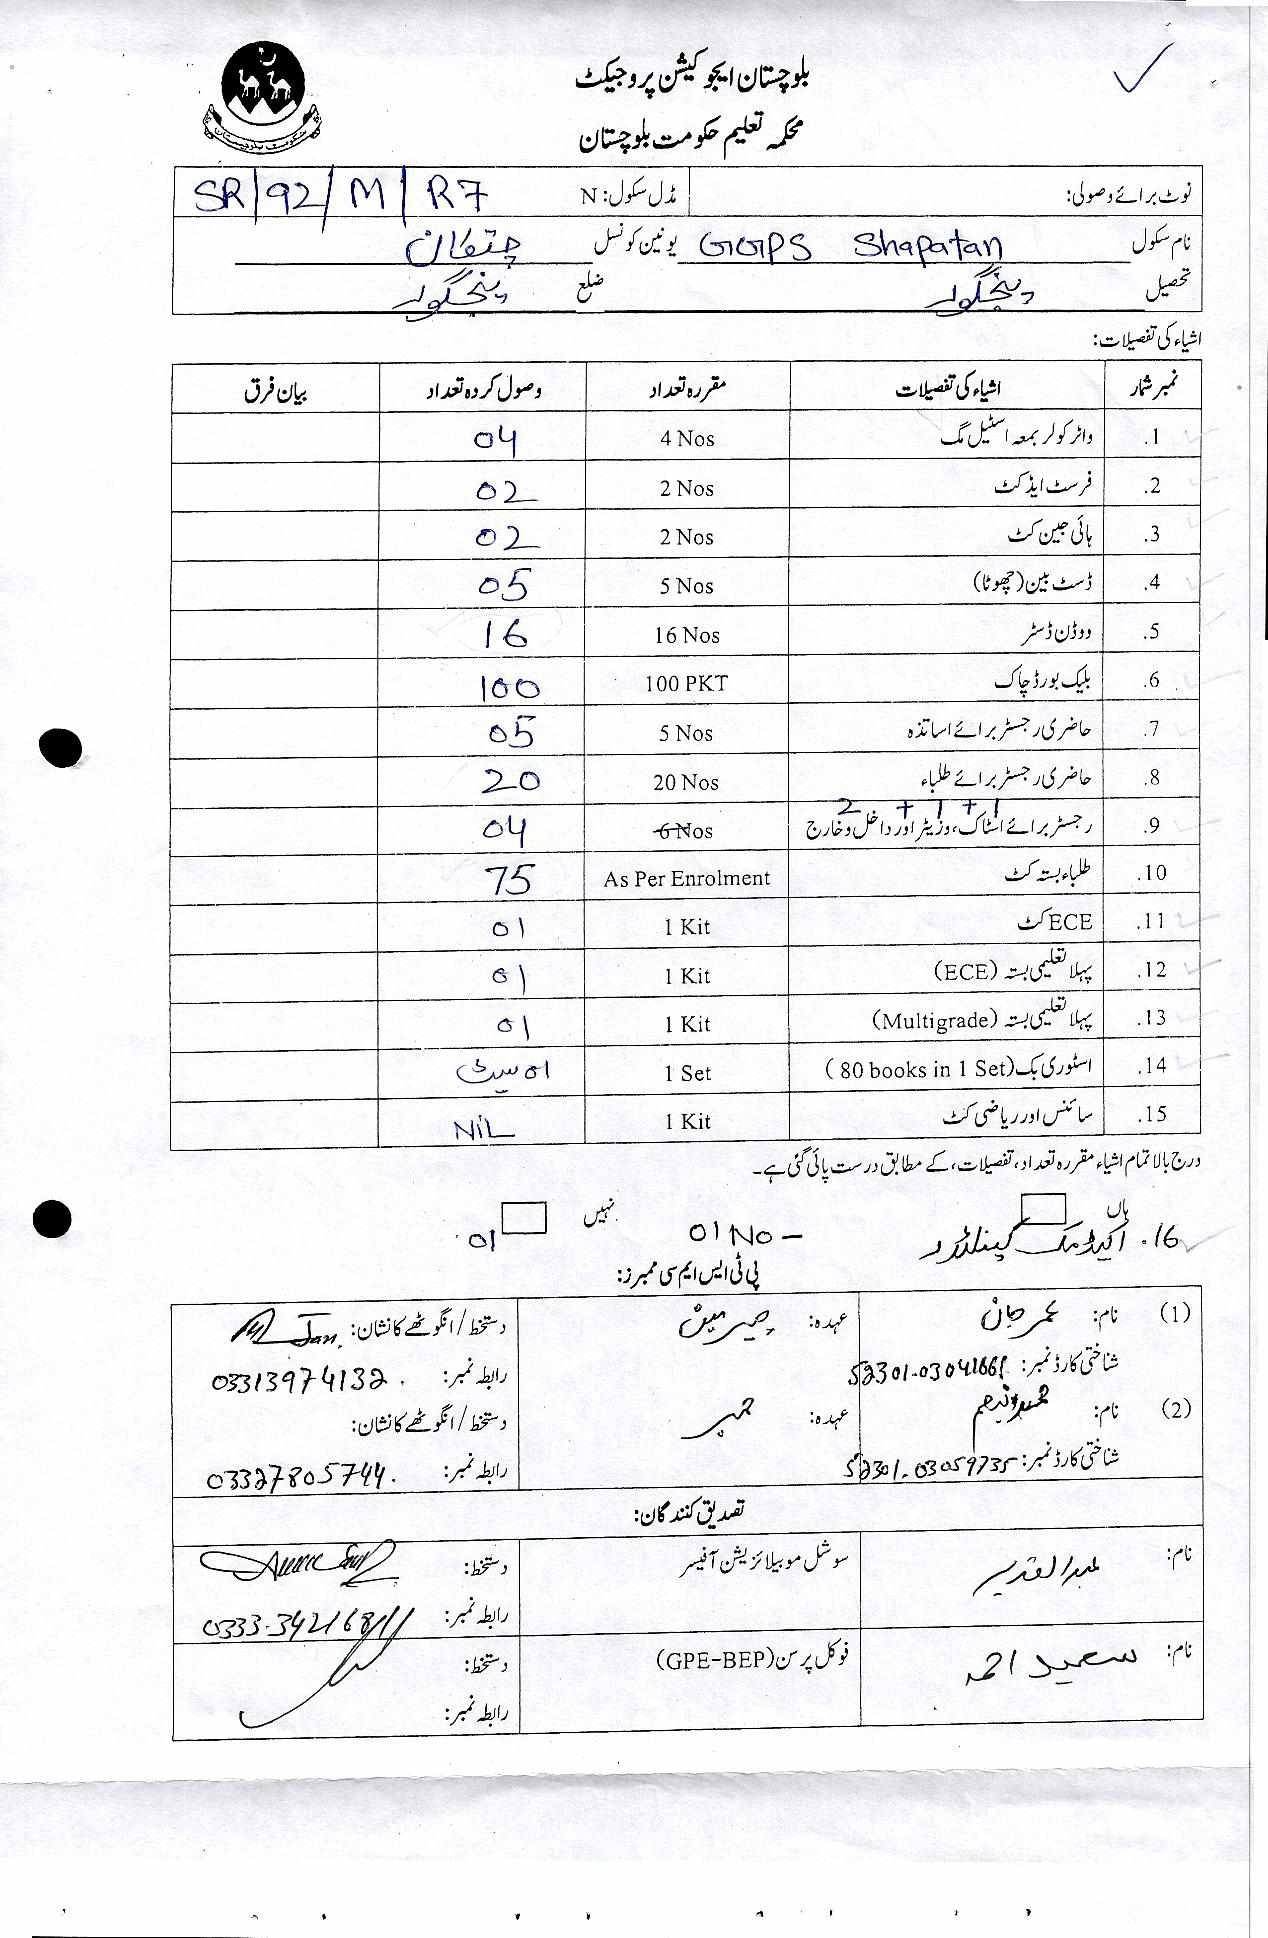 بلوچستان ایجوکیشن پروجیکٹ
محکمہ تعلیم حکومت بلوچستان
حکومت بلوچستان
نوٹ برائے وصولی: مڈل سکول: N SR/92/M/R7
نام سکول GGPS Shapatan یونین کونسل چتکان
تحصیل پنجگور ضلع پنجگور
اشیاء کی تفصیلات:
نمبر شمار اشیاء کی تفصیلات مقررہ تعداد وصول کردہ تعداد بیان فرق
1. واٹر کولر بمعہ اسٹیل مگ 4 Nos 04
2. فرسٹ ایڈ کٹ 2 Nos 02
3. ہائی جین کٹ 2 Nos 02
4. ڈسٹ بین (چھوٹا) 5 Nos 05
5. ووڈن ڈسٹر 16 Nos 16
6. بلیک بورڈ چاک 100 PKT 100
7. حاضری رجسٹر برائے اساتذہ 5 Nos 05
8. حاضری رجسٹر برائے طلباء 20 Nos 20
2 + 1 + 1
9. رجسٹر برائے اسٹاک، وزیٹر اور داخل و خارج 6 Nos 04
10. طلباء بستہ کٹ As Per Enrolment 75
11. ECE کٹ 1 Kit 01
12. پہلا تعلیمی بستہ (ECE) 1 Kit 01
13. پہلا تعلیمی بستہ (Multigrade) 1 Kit 01
14. اسٹوری بک (80 books in 1 Set) 1 Set 01 سیٹ
15. سائنس اور ریاضی کٹ 1 Kit NiL
درج بالا تمام اشیاء مقررہ تعداد، تفصیلات، کے مطابق درست پائی گئی ہے۔
ہاں نہیں
16. اکیڈمک کیلنڈر 01 No – 01
پی ٹی ایس ایم سی ممبرز:
(1) نام: عمر جان عہدہ: چیرمین دستخط/انگوٹھے کا نشان: Jan.
شناختی کارڈ نمبر: رابطہ نمبر: 03313974132.
(2) نام: عہدہ: ممبر دستخط/انگوٹھے کا نشان:
شناختی کارڈ نمبر: 52301-03059735 رابطہ نمبر: 03327805744.
تصدیق کنندگان:
نام: عبدالقدیر سوشل موبیلائزیشن آفیسر دستخط:
رابطہ نمبر:
نام: سعید احمد فوکل پرسن (GPE-BEP) دستخط:
رابطہ نمبر: